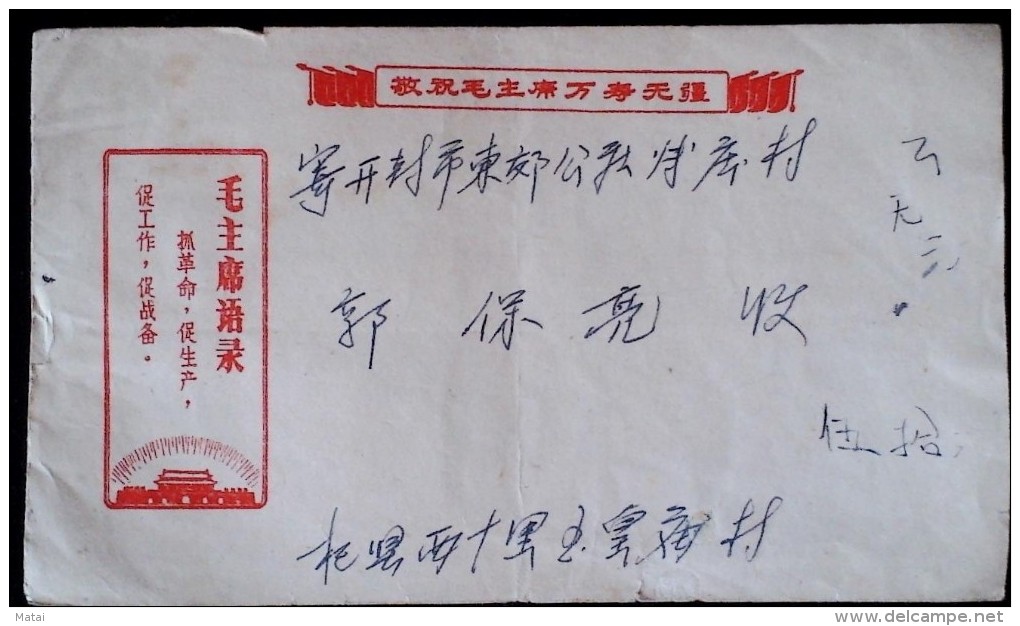 敬祝毛主席万寿无疆
毛主席语录
抓革命，促生产，
促工作，促战备。
寄开封市東郊公社 庄村
郭保亮 收
伍拾
杞县西十里玉皇庙村
Matai
delcampe.net